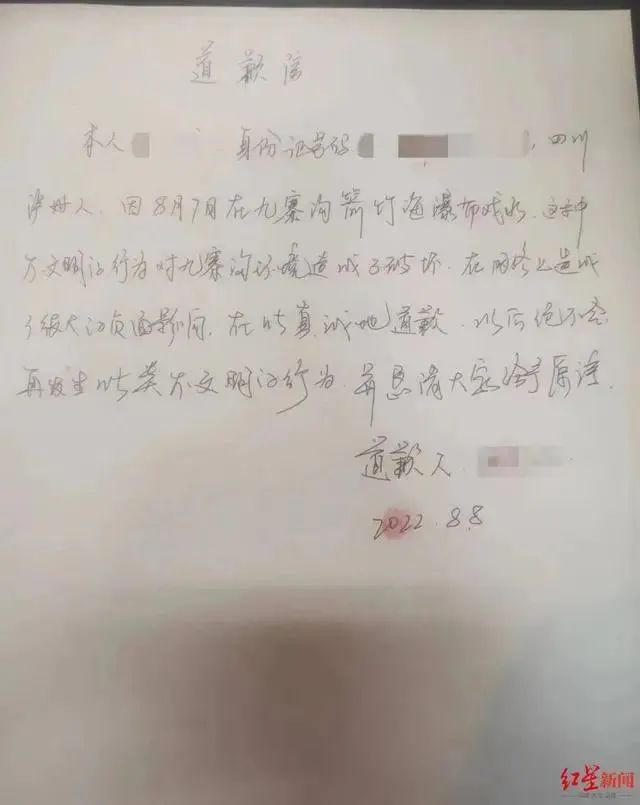 道歉信
本人 身份证号码 ,四川
泸州人,因8月7日在九寨沟箭竹海瀑布戏水,这种
不文明的行为对九寨沟环境造成了破坏.在网络上造成
了很大的负面影响,在此真诚地道歉.以后绝不会
再发生此类不文明的行为.并恳请大家给予原谅.
道歉人
2022.8.8
红星新闻